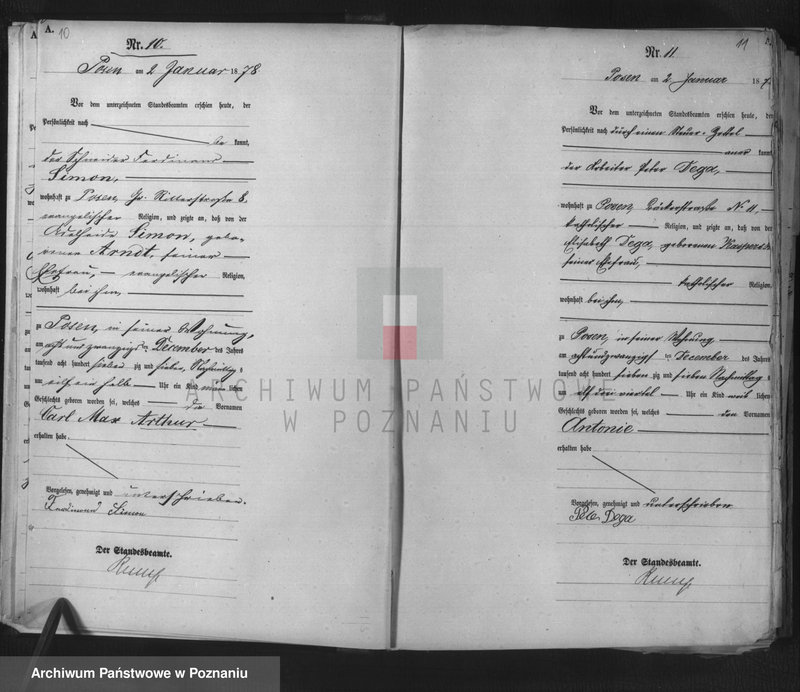 A. 10
Nr. 10.
Posen am 2 Januar 1878
Vor dem unterzeichneten Standesbeamten erschien heute, der
Persönlichkeit nach
be kannt,
der Schneider Ferdinand
Simon,
wohnhaft zu Posen, Gr. Ritterstraße 8.
evangelischer Religion, und zeigte an, daß von der
Adelheide Simon, gebo-
renen Arndt, seiner
Ehefrau, evangelischer Religion,
wohnhaft bei ihm,
zu Posen, in seiner Wohnung,
am acht und zwanzigsten December des Jahres
tausend acht hundert sieben zig und sieben, Nachmittag s
um eilf ein halb Uhr ein Kind männ lichen
Geschlechts geboren worden sei, welches die Vornamen
Carl Max Arthur
erhalten habe.
Vorgelesen, genehmigt und unterschrieben.
Ferdinand Simon
Der Standesbeamte.
11
Nr. 11
Posen am 2 Januar 187
Vor dem unterzeichneten Standesbeamten erschien heute, der
Persönlichkeit nach durch einen Steuer-Zettel
aner kannt,
der Arbeiter Peter Dega,
wohnhaft zu Posen, Bäckerstraße No 11,
katholischer Religion, und zeigte an, daß von der
Elisabeth Dega, geborenen
seiner Ehefrau,
katholischer Religion,
wohnhaft bei ihm,
zu Posen, in seiner Wohnung
am achtundzwanzigsten December des Jahres
tausend acht hundert sieben zig und sieben Nachmittag s
um elf drei viertel Uhr ein Kind weib lichen
Geschlechts geboren worden sei, welches den Vornamen
Antonie
erhalten habe
Vorgelesen, genehmigt und unterschrieben
Peter Dega
Der Standesbeamte.
ARCHIWUM PAŃSTWOWE
W POZNANIU
Archiwum Państwowe w Poznaniu